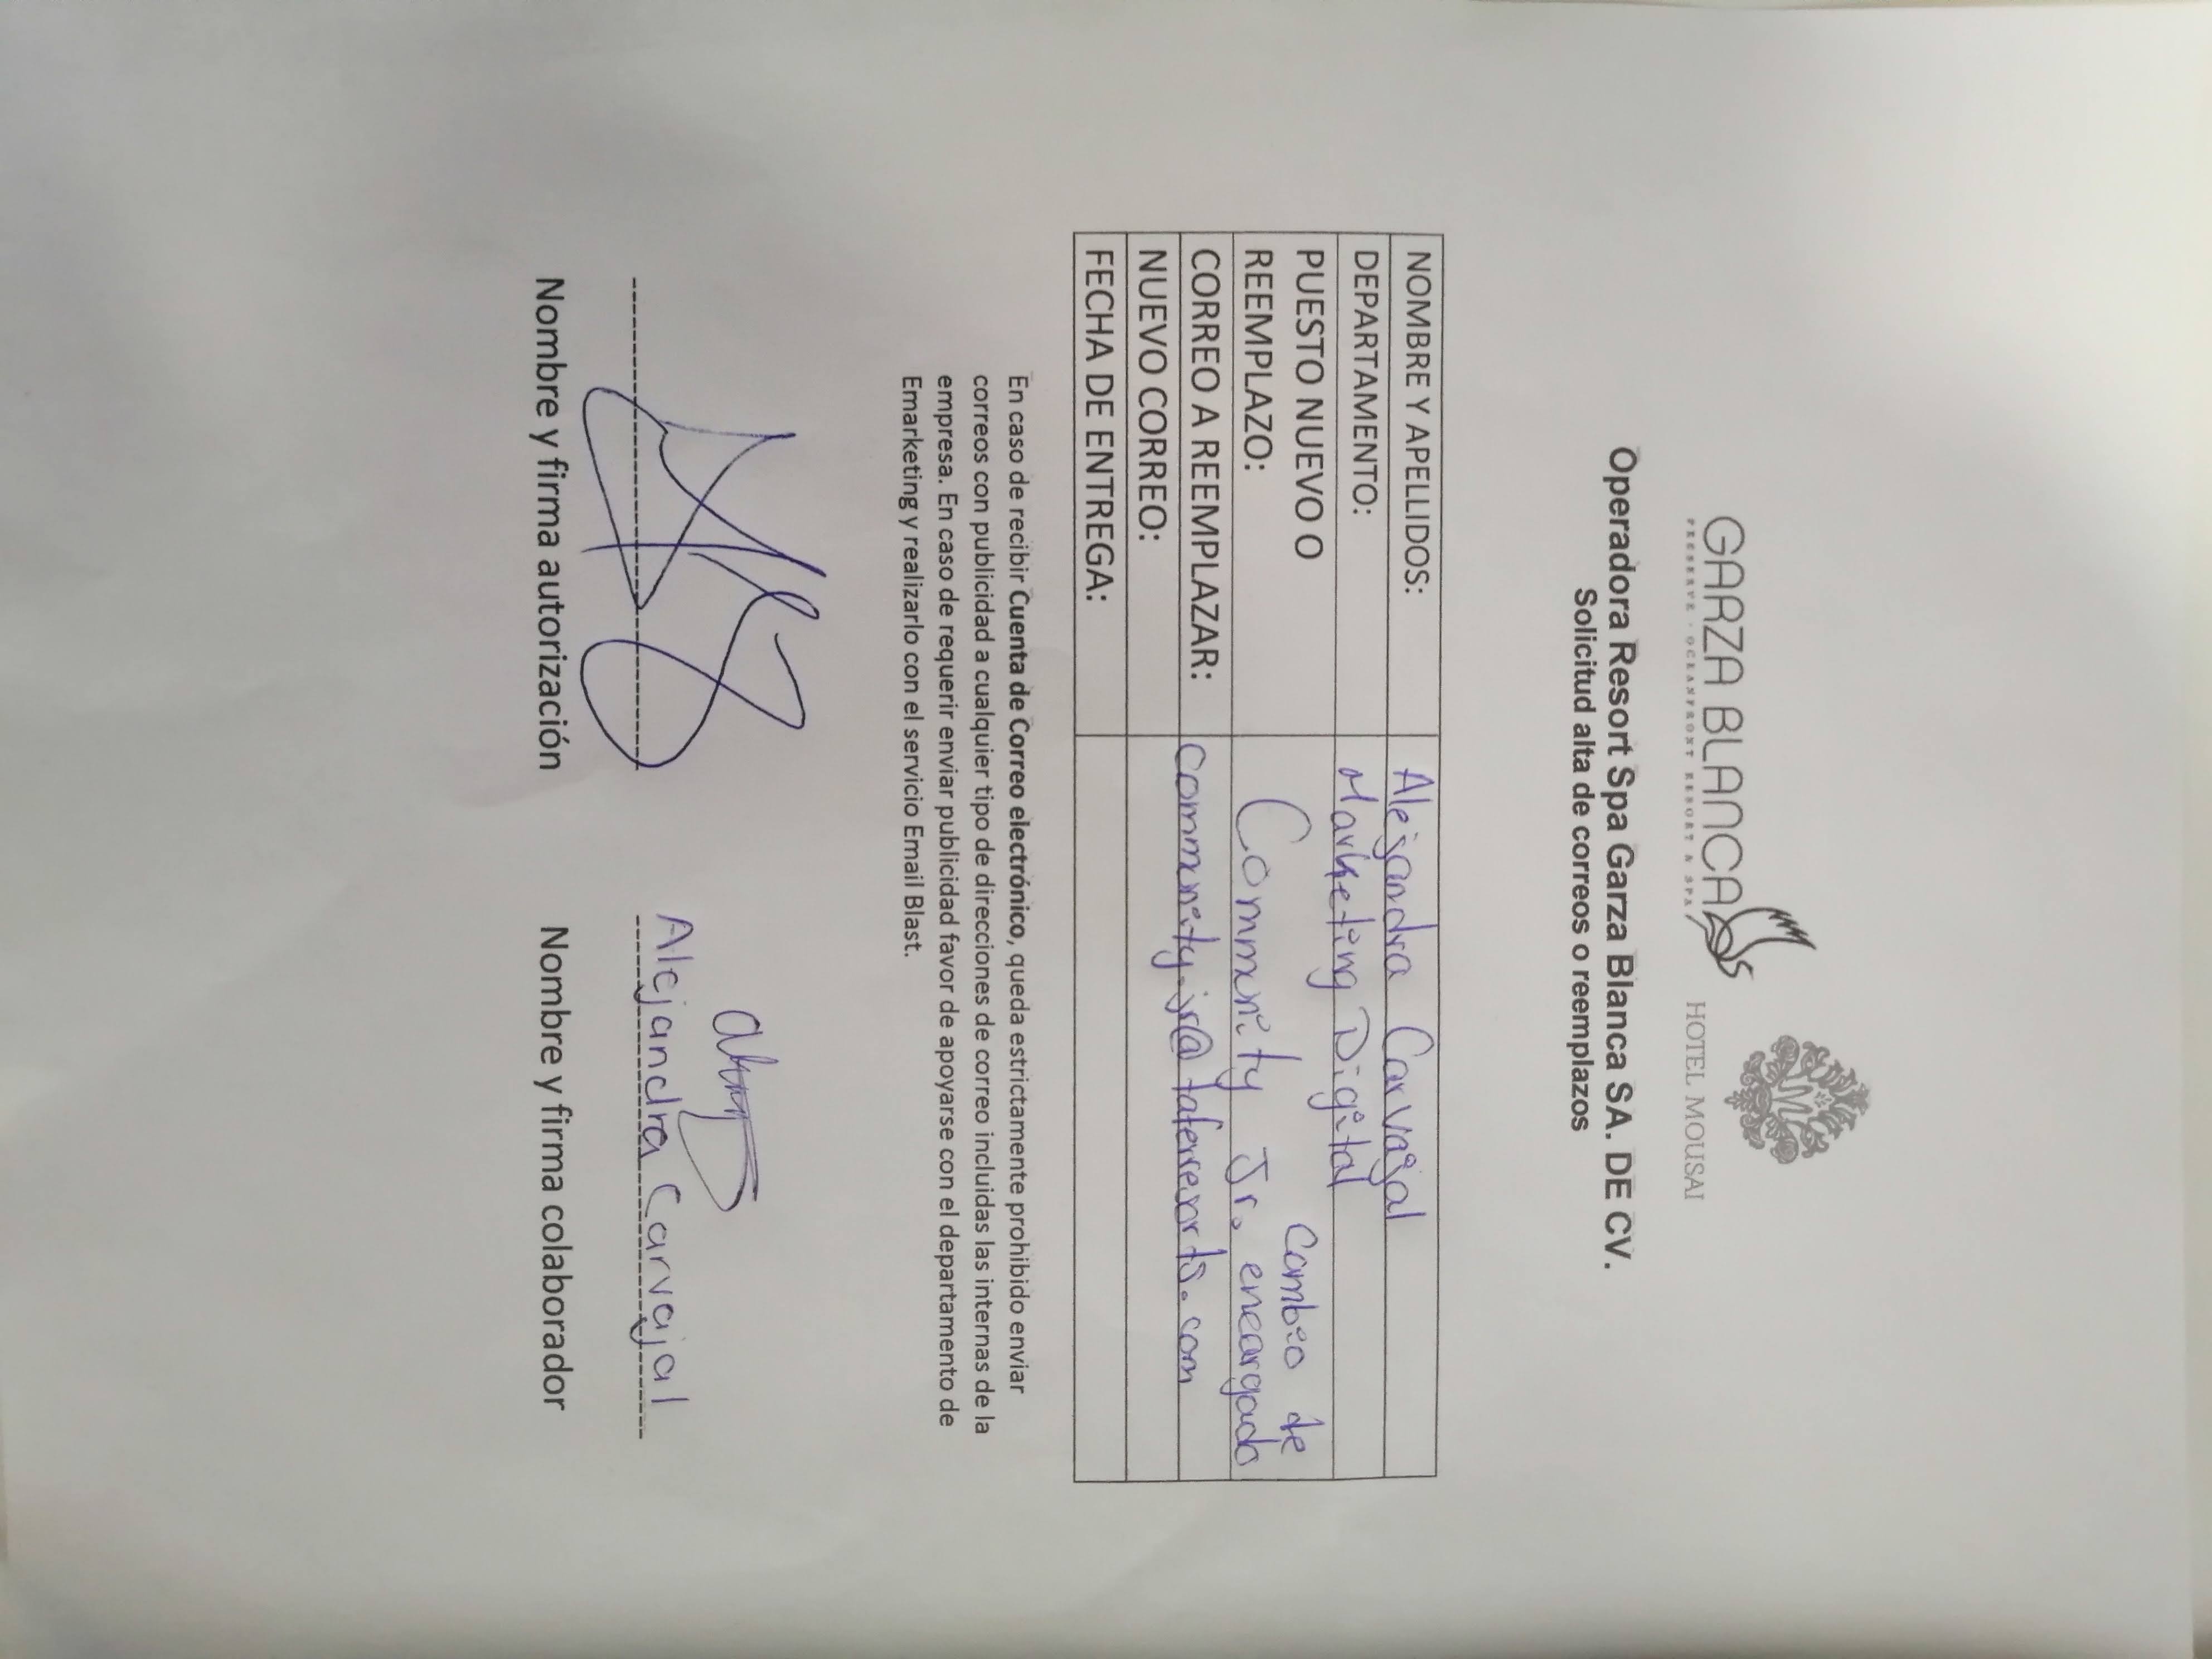 GARZA BLANCA
PRESERVE · OCEANFRONT RESORT & SPA
HOTEL MOUSAI
Operadora Resort Spa Garza Blanca SA. DE CV.
Solicitud alta de correos o reemplazos
NOMBRE Y APELLIDOS: Alejandra Carvajal
DEPARTAMENTO: Marketing Digital
PUESTO NUEVO O REEMPLAZO: Community Jr. Cambio de encargado
CORREO A REEMPLAZAR: community.jr@taferresorts.com
NUEVO CORREO:
FECHA DE ENTREGA:
En caso de recibir Cuenta de Correo electrónico, queda estrictamente prohibido enviar
correos con publicidad a cualquier tipo de direcciones de correo incluidas las internas de la
empresa. En caso de requerir enviar publicidad favor de apoyarse con el departamento de
Emarketing y realizarlo con el servicio Email Blast.
Alejandra Carvajal
Nombre y firma autorización
Nombre y firma colaborador